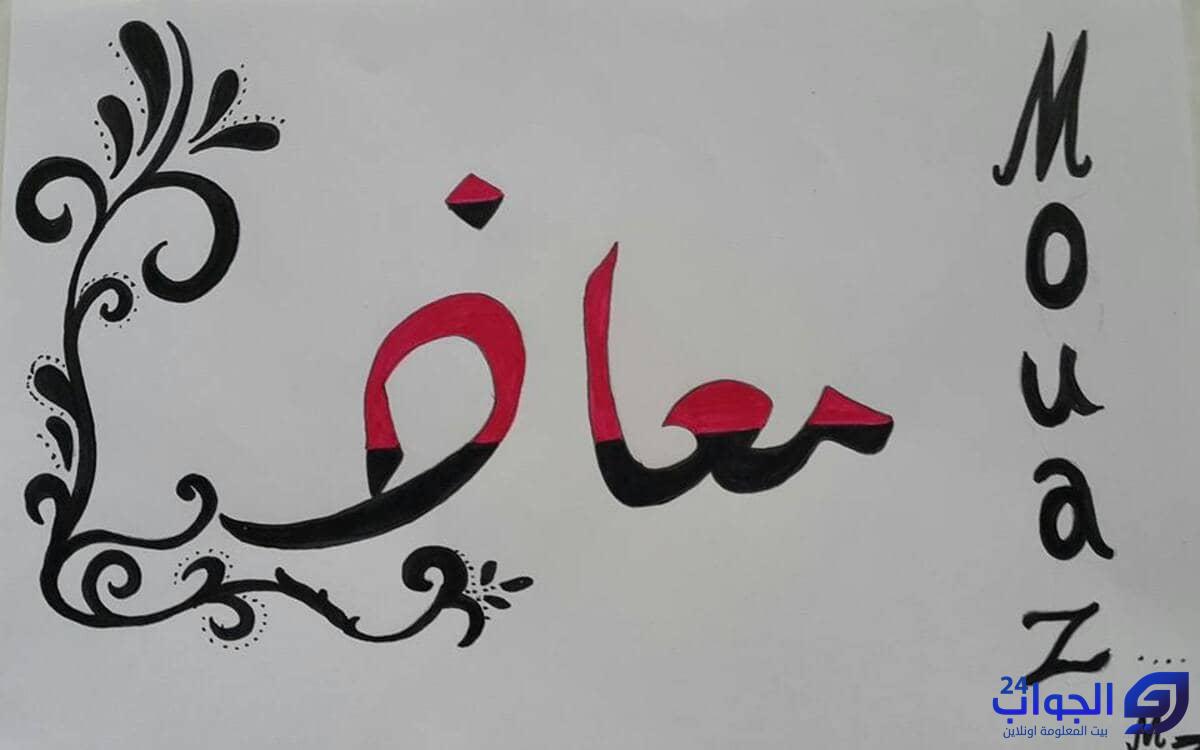 معاذ
Mouaz
....
الجواب 24
بيت المعلومة اونلاين
M_